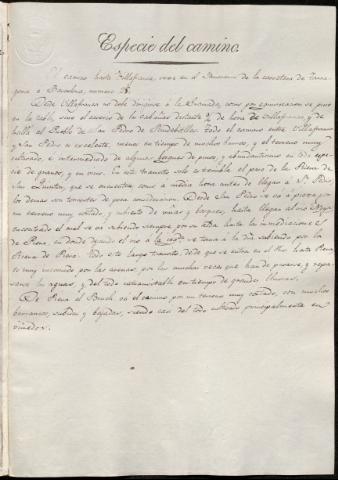 Especie del camino.
El camino hasta Villafranca, vease en el Itinerario de la carretera de Tarra-
gona a Barcelona, numero 
Desde Villafranca no debe dirigirse á la Granada, como por
la calle, sino el de la cabañas distante de hora de Villafranca, y de
hallí al Pueblo de San Pedro de Riudebitlles. Todo el camino entre Villafranca
y San Pedro es carretero, menos en tiempo de muchos barros, y el terreno muy
cultivado, é intermediado de algunos bosques de pinos, y abundantísimo en toda espe-
cie de granos, y en vino. En este transito solo es temible el paso de la Riera de
San Quintin, que se encuentra como a media hora antes de llegar a Sn. Pedro
los demas son torrentes de poca consideracion. Desde San Pedro se va á Piera por
un terreno muy cortado, y cubierto de viñas y bosques, hasta llegar al rio Noya
encontrado el cual se va subiendo siempre por su orilla hasta las inmediaciones
de Piera, en donde dejando el rio á la se toma á la dra. subiendo por la
Riera de Piera. Todo este largo transito, desde que se entra en el Rio hasta Piera
es muy incomodo por las arenas, por las muchas veces que han de pasarse, y repa-
sarse las aguas, y del todo intransitable en tiempo de grandes lluvias.
De Piera al Bruch va el camino por un terreno muy cortado, con muchos
barrancos, subidas y bajadas, siendo casi del todo cultivado principalmente en
viñedos.